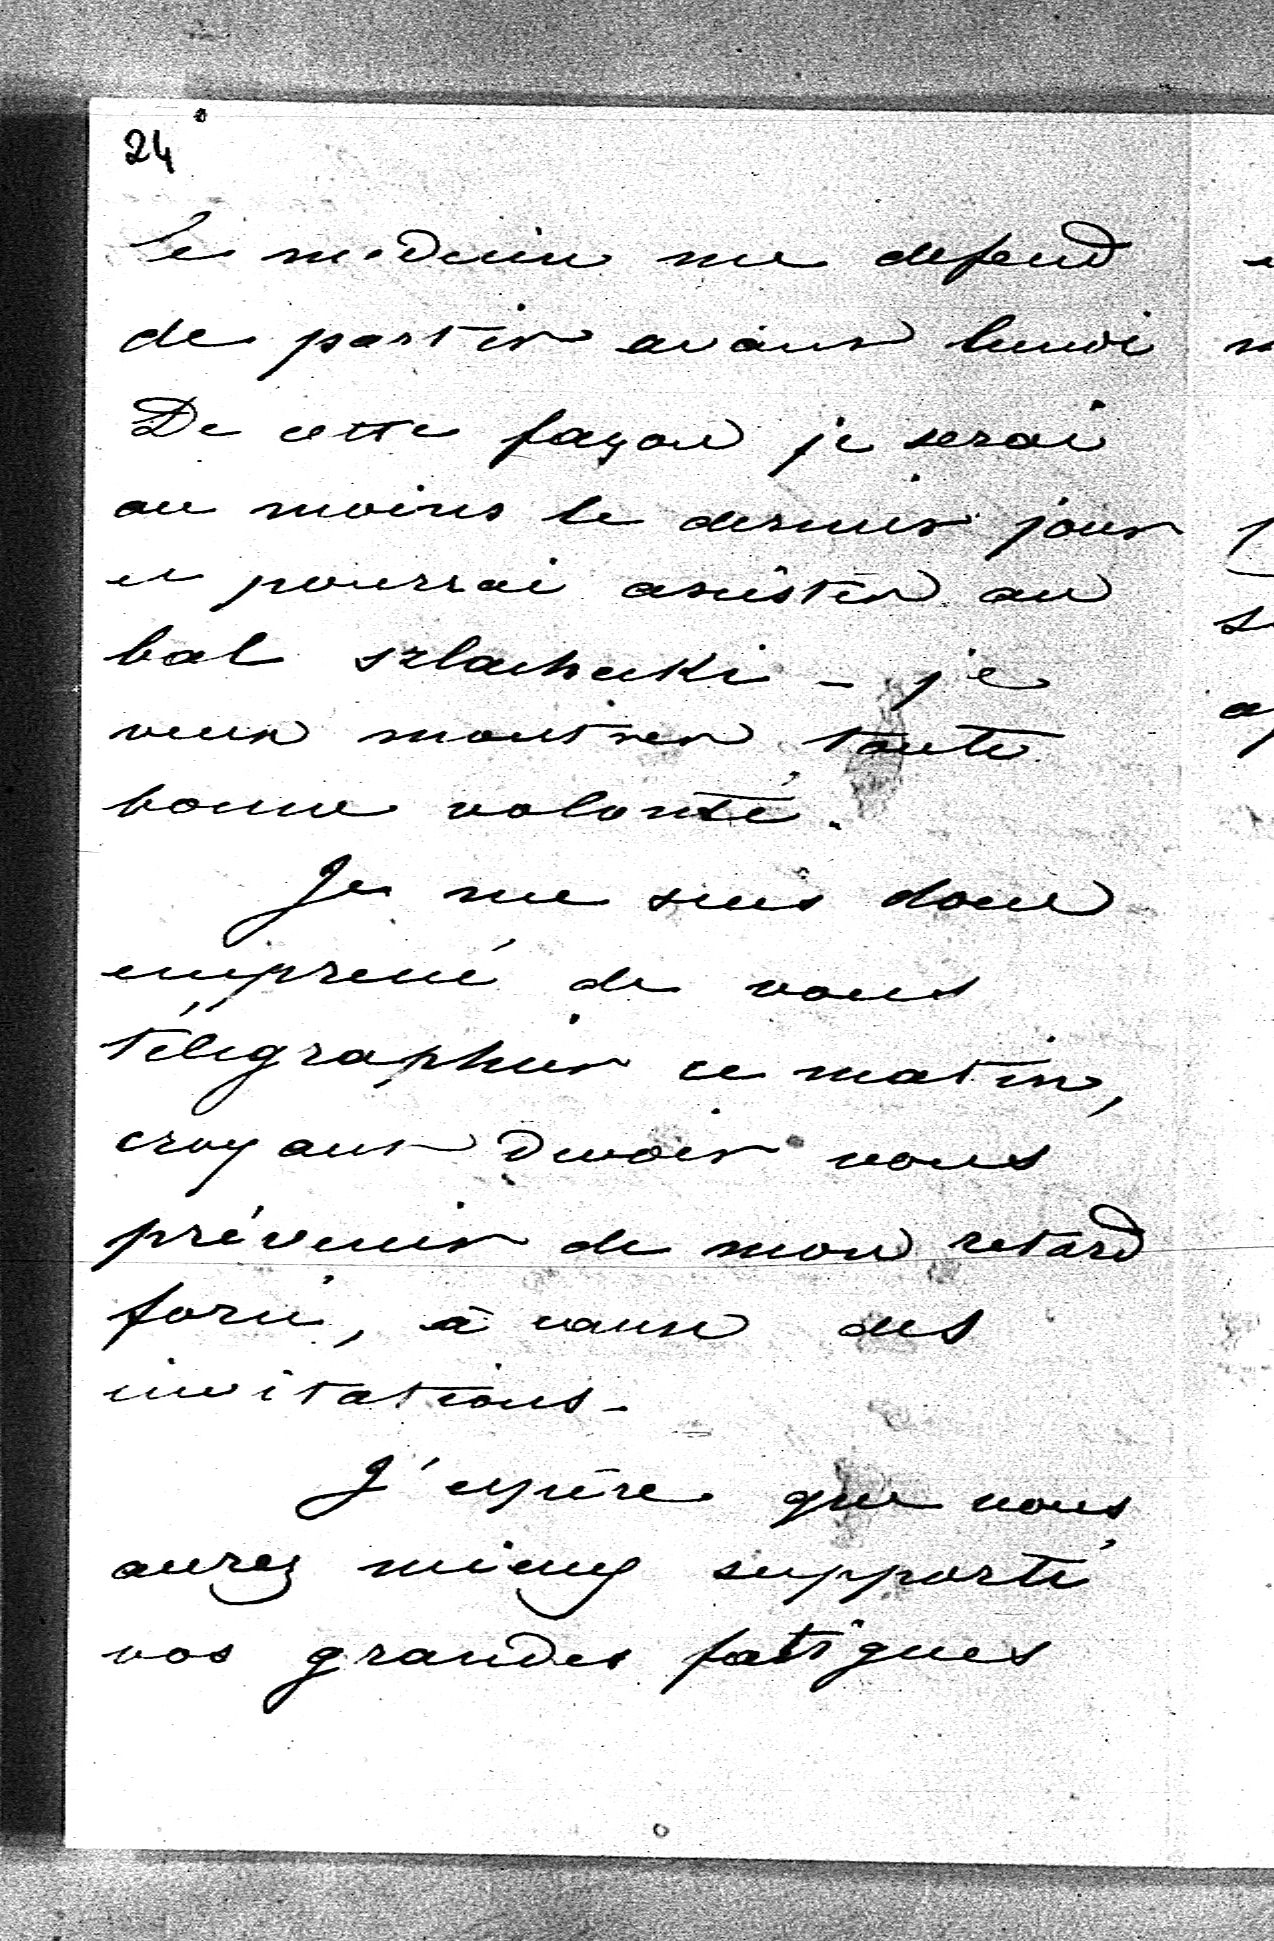 24
Le médecin me defend
de partir avant lundi
De cette façon je serai
au moins le dernier jour
et pourrai assister au
bal szlachecki – je
veux montrer toute
bonne volonté.
Je me suis donc
empressé de vous
télégraphier ce matin,
croyant devoir vous
prévenir de mon retard
forcé, à cause des
invitations.
J'espère que vous
aurez mieux supporté
vos grandes fatigues